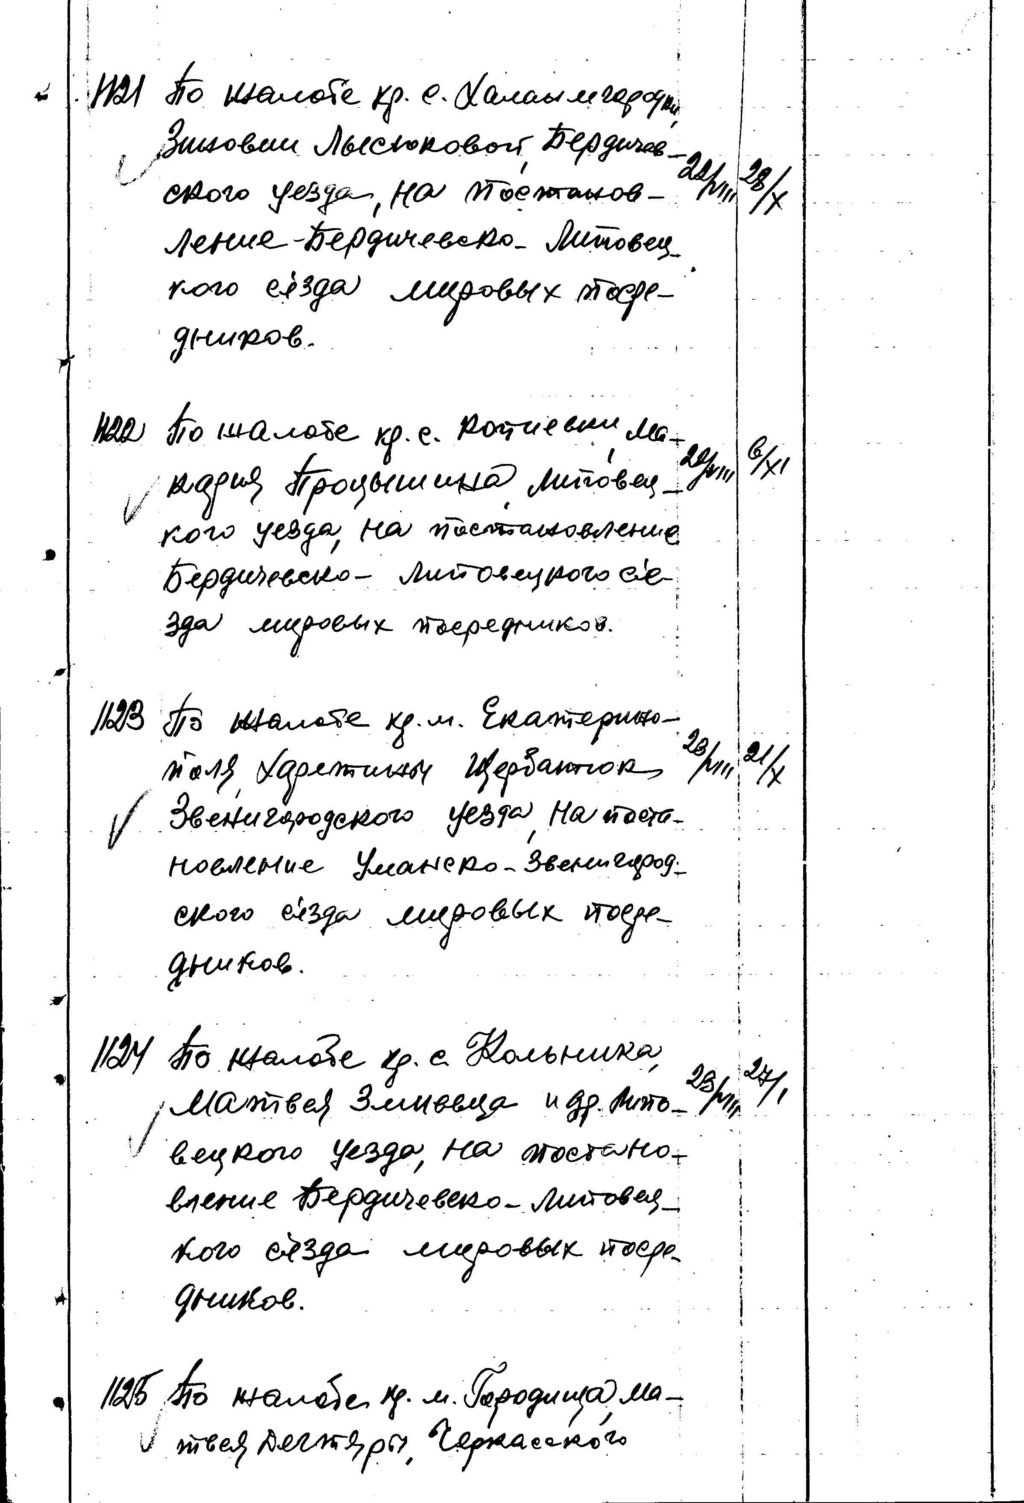 1121 По жалобе кр. с. Халаимгородки,
Зиновии Лысюковой, Бердичев-
ского уезда, на постанов-
22/VIII 28/X
ление Бердичевско-Липовец-
кого с'езда мировых посре-
дников.
1122 По жалобе кр. с. Копиевки, Ма-
кария Процышина, Липовец-
22/VIII 6/XI
кого уезда, на постановление
Бердичевско-Липовецкого с'е-
зда мировых посредников.
1123 По жалобе кр. м. Екатерино-
поля, Харитины Щербатюк,
23/VIII 21/X
Звенигородского уезда, на поста-
новление Уманско-Звенигород-
ского с'езда мировых посре-
дников.
1124 По жалобе кр. с. Кольника,
Матвея Зинавца и др. Липо-
23/VIII 27/I
вецкого уезда, на постано-
вление Бердичевско-Липовец-
кого с'езда мировых посре-
дников.
1125 По жалобе кр. м. Городища, Ма-
твея Дегтяры, Черкасского